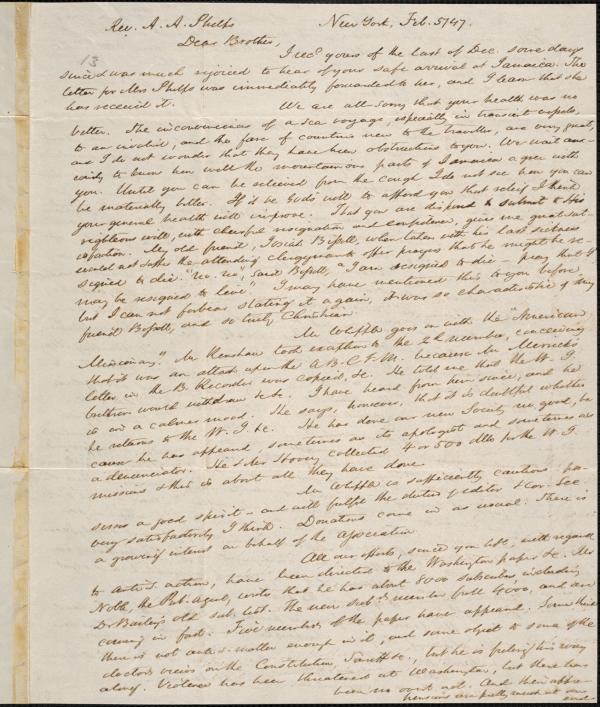 Rev. A. A. Phelps New York, Feb. 5/47.
Dear Brother,
13
I recd yours of the last of Dec. some days
since & was much rejoiced to hear of your safe arrival at Jamaica. The
letter for Mrs Phelps was immediately forwarded to her, and I learn that she
has received it.
We are all sorry that your health was no
better. The inconveniences of a sea voyage, especially in transient vessels,
to an invalid, and the fare of countries new to the traveller, are very great,
and I do not wonder that they have been obstructions to you. We wait anx-
iously to know how will the mountainous parts of Jamaica agree with
you. Until you can be relieved from the cough I do not see how you can
be materially better. If it be God's will to afford you that relief I think
your general health will improve. That you are disposed to submit to His
righteous will, with cheerful resignation and confidence, gives me great sat-
isfaction. My old friend, Josiah Bissell, when taken with his last sickness
would not suffer the attending clergyman to offer prayers that he might be re-
signed to die. "No, no", said Bissell, "I am resigned to die - pray that I
may be resigned to live." I may have mentioned this to you before
but I can not forbear stating it again, it was so characteristic of my
friend Bissell, and so truly Christian.
Mr Whipple goes on with the "American
Missionary." Mr Renshaw took exception to the 2d number, conceiving
that it was an attack upon the A.B.C.F.M. because Mr Merrick's
letter in the B. Recorder was copied, &c. He told me that the W. I.
brethren would withdraw &c &c. I have heard from him since, and he
is in a calmer mood. He says, however, that it is doubtful whether
he returns to the W. I. &c. He has done our new Society no good, be
cause he has appeared, sometimes as its apologist and sometimes as
a denunciator. He & Mr Hovey collected 4 or 500 dlls for the W. I.
missions & this is about all they have done.
Mr Whipple is sufficiently cautious - pos-
sesses a good spirit - and will fulfil the duties of editor & Cor. Sec
very satisfactorily I think. Donations come in as usual. There is
a growing interest on behalf of the Association.
All our efforts, since you left, with regard
to anti-s. action, have been directed to the Washington paper &c. Mr
Noble, the Pub. Agent, writes that he has about 8000 subscribers, including
Dr Bailey's old sub. list. The new subs. number full 4000, and are
coming in fast. Five numbers of the paper have appeared. Some think
there is not anti-s. matter enough in it, and some object to some of the
doctor's views on the Constitution, &c, but he is feeling his way
along. Violence has been threatened at Washington, but there has
been no overt act. And their appre-
hensions are pretty much at an
end.